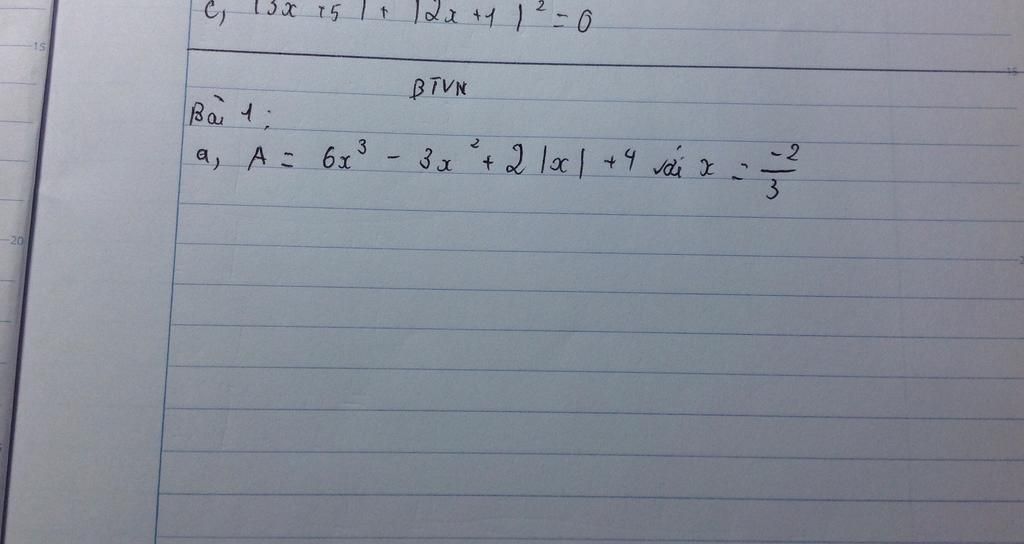 c, |3x + 5| + |2x + 1|² = 0
BTVN
Bài 1:
a, A = 6x³ - 3x² + 2|x| + 4 với x = -2/3
15
20
15